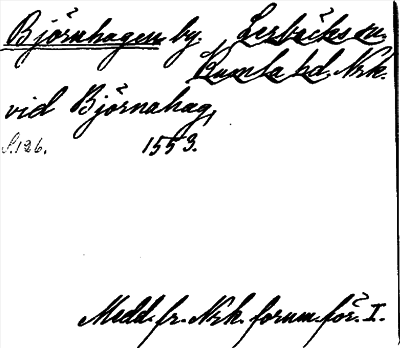 Björnhagen by. Lerbäcks sn.
Kumla hd. Nrk.
vid Björnahag,
S. 126. 1553.
Medd. fr. Nrk. fornm.för. I.